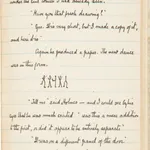 under the last words I had already seen.
"Have you that fresh drawing?"
"Yes. It was very short, but I made a copy of it,
and here it is."
Cubitt produced a paper. The new dance
was in this form.
"Tell me" said Holmes – and I could see by his
eyes that he was much excited – "was this a mere addition to
the first, or did it appear to be entirely separate"
"It was on a different panel of the door."